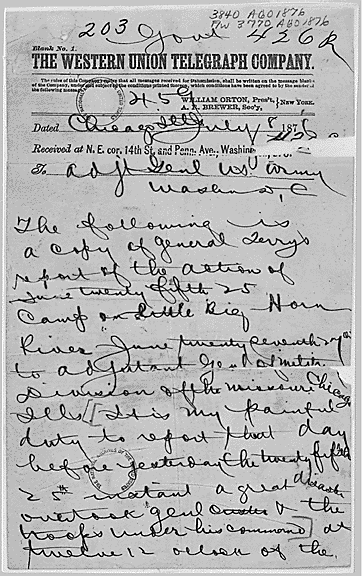 3840 AGO 1876
F/W 3770 AGO 1876
203 Govt 426 R
Blank No. 1.
THE WESTERN UNION TELEGRAPH COMPANY.
The rules of this Company require that all messages received for transmission, shall be written on the message blanks
of the Company, under and subject to the conditions printed thereon, which conditions have been agreed to by the sender of
the following message.
459
WILLIAM ORTON, Pres't,
A. R. BREWER, Sec'y, } NEW YORK.
Dated Chicago Ills July 8 187
Received at N. E. cor. 14th St. and Penn. Ave., Washin
To Adjt Genl US Army
Washn D, C
The following is
a copy of general Terrys
report of the action of
June twenty fifth 25
Camp on Little Big Horn
River June twenty seventh 27th
to adjutant Genl of Milita
Division of the Missouri Chicago
Ills [It is my painful
duty to report that day
before yesterday the twenty fifth
25th instant a great disaster
overtook genl Custer & the
troops under his command] at
twelve 12 oclock of the